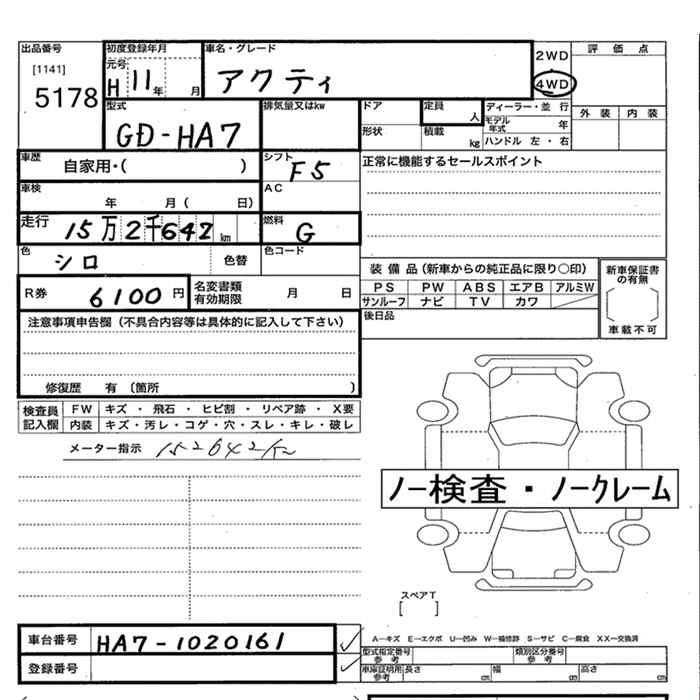 出品番号 初度登録年月 車名・グレード 2WD 評価点
[1141] 元号 H 11年 月 アクティ 4WD
5178
型式 排気量又はkw ドア 定員 人 ディーラー・並行 外装 内装
GD-HA7 形状 積載 kg モデル年式 年
ハンドル 左・右
車歴 自家用・( ) シフト F5 正常に機能するセールスポイント
車検 年 月( 日) AC
走行 15万2千642km 燃料 G
色 シロ 色替 色コード
装備品(新車からの純正品に限り○印) 新車保証書の有無
R券 6100円 名変書類有効期限 月 日 PS PW ABS エアB アルミW
サンルーフ ナビ TV カワ 車載不可
注意事項申告欄(不具合内容等は具体的に記入して下さい) 後日品
修復歴 有 〔箇所 〕
検査員記入欄 FW キズ・飛石・ヒビ割・リペア跡・X要
内装 キズ・汚レ・コゲ・穴・スレ・キレ・破レ
メーター指示 152642km
ノー検査・ノークレーム
スペアT
[ ]
車台番号 HA7-1020161
A―キズ E―エクボ U―凹み W―補修跡 S―サビ C―腐食 XX―交換済
登録番号 型式指定番号 参考 類別区分番号 参考
車庫証明用 参考 長さ cm 幅 cm 高さ cm